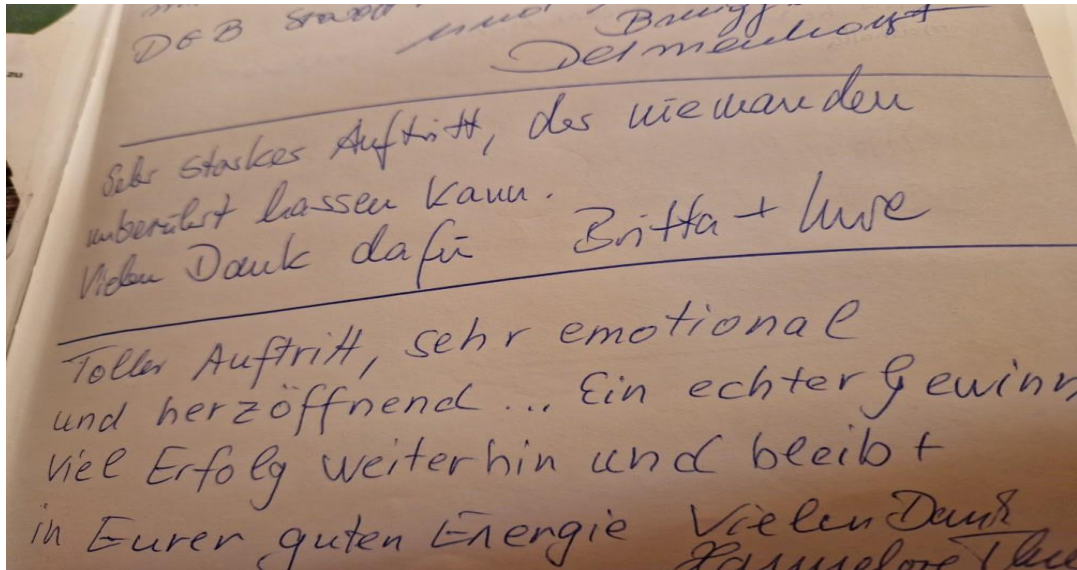 DGB
und
Delmenhorst
Sehr starker Auftritt, der niemanden
unberührt lassen kann.
Vielen Dank dafür Britta + Uwe
Toller Auftritt, sehr emotional
und herzöffnend... Ein echter Gewinn
viel Erfolg weiterhin und bleibt
in Eurer guten Energie Vielen Dank
Hannelore